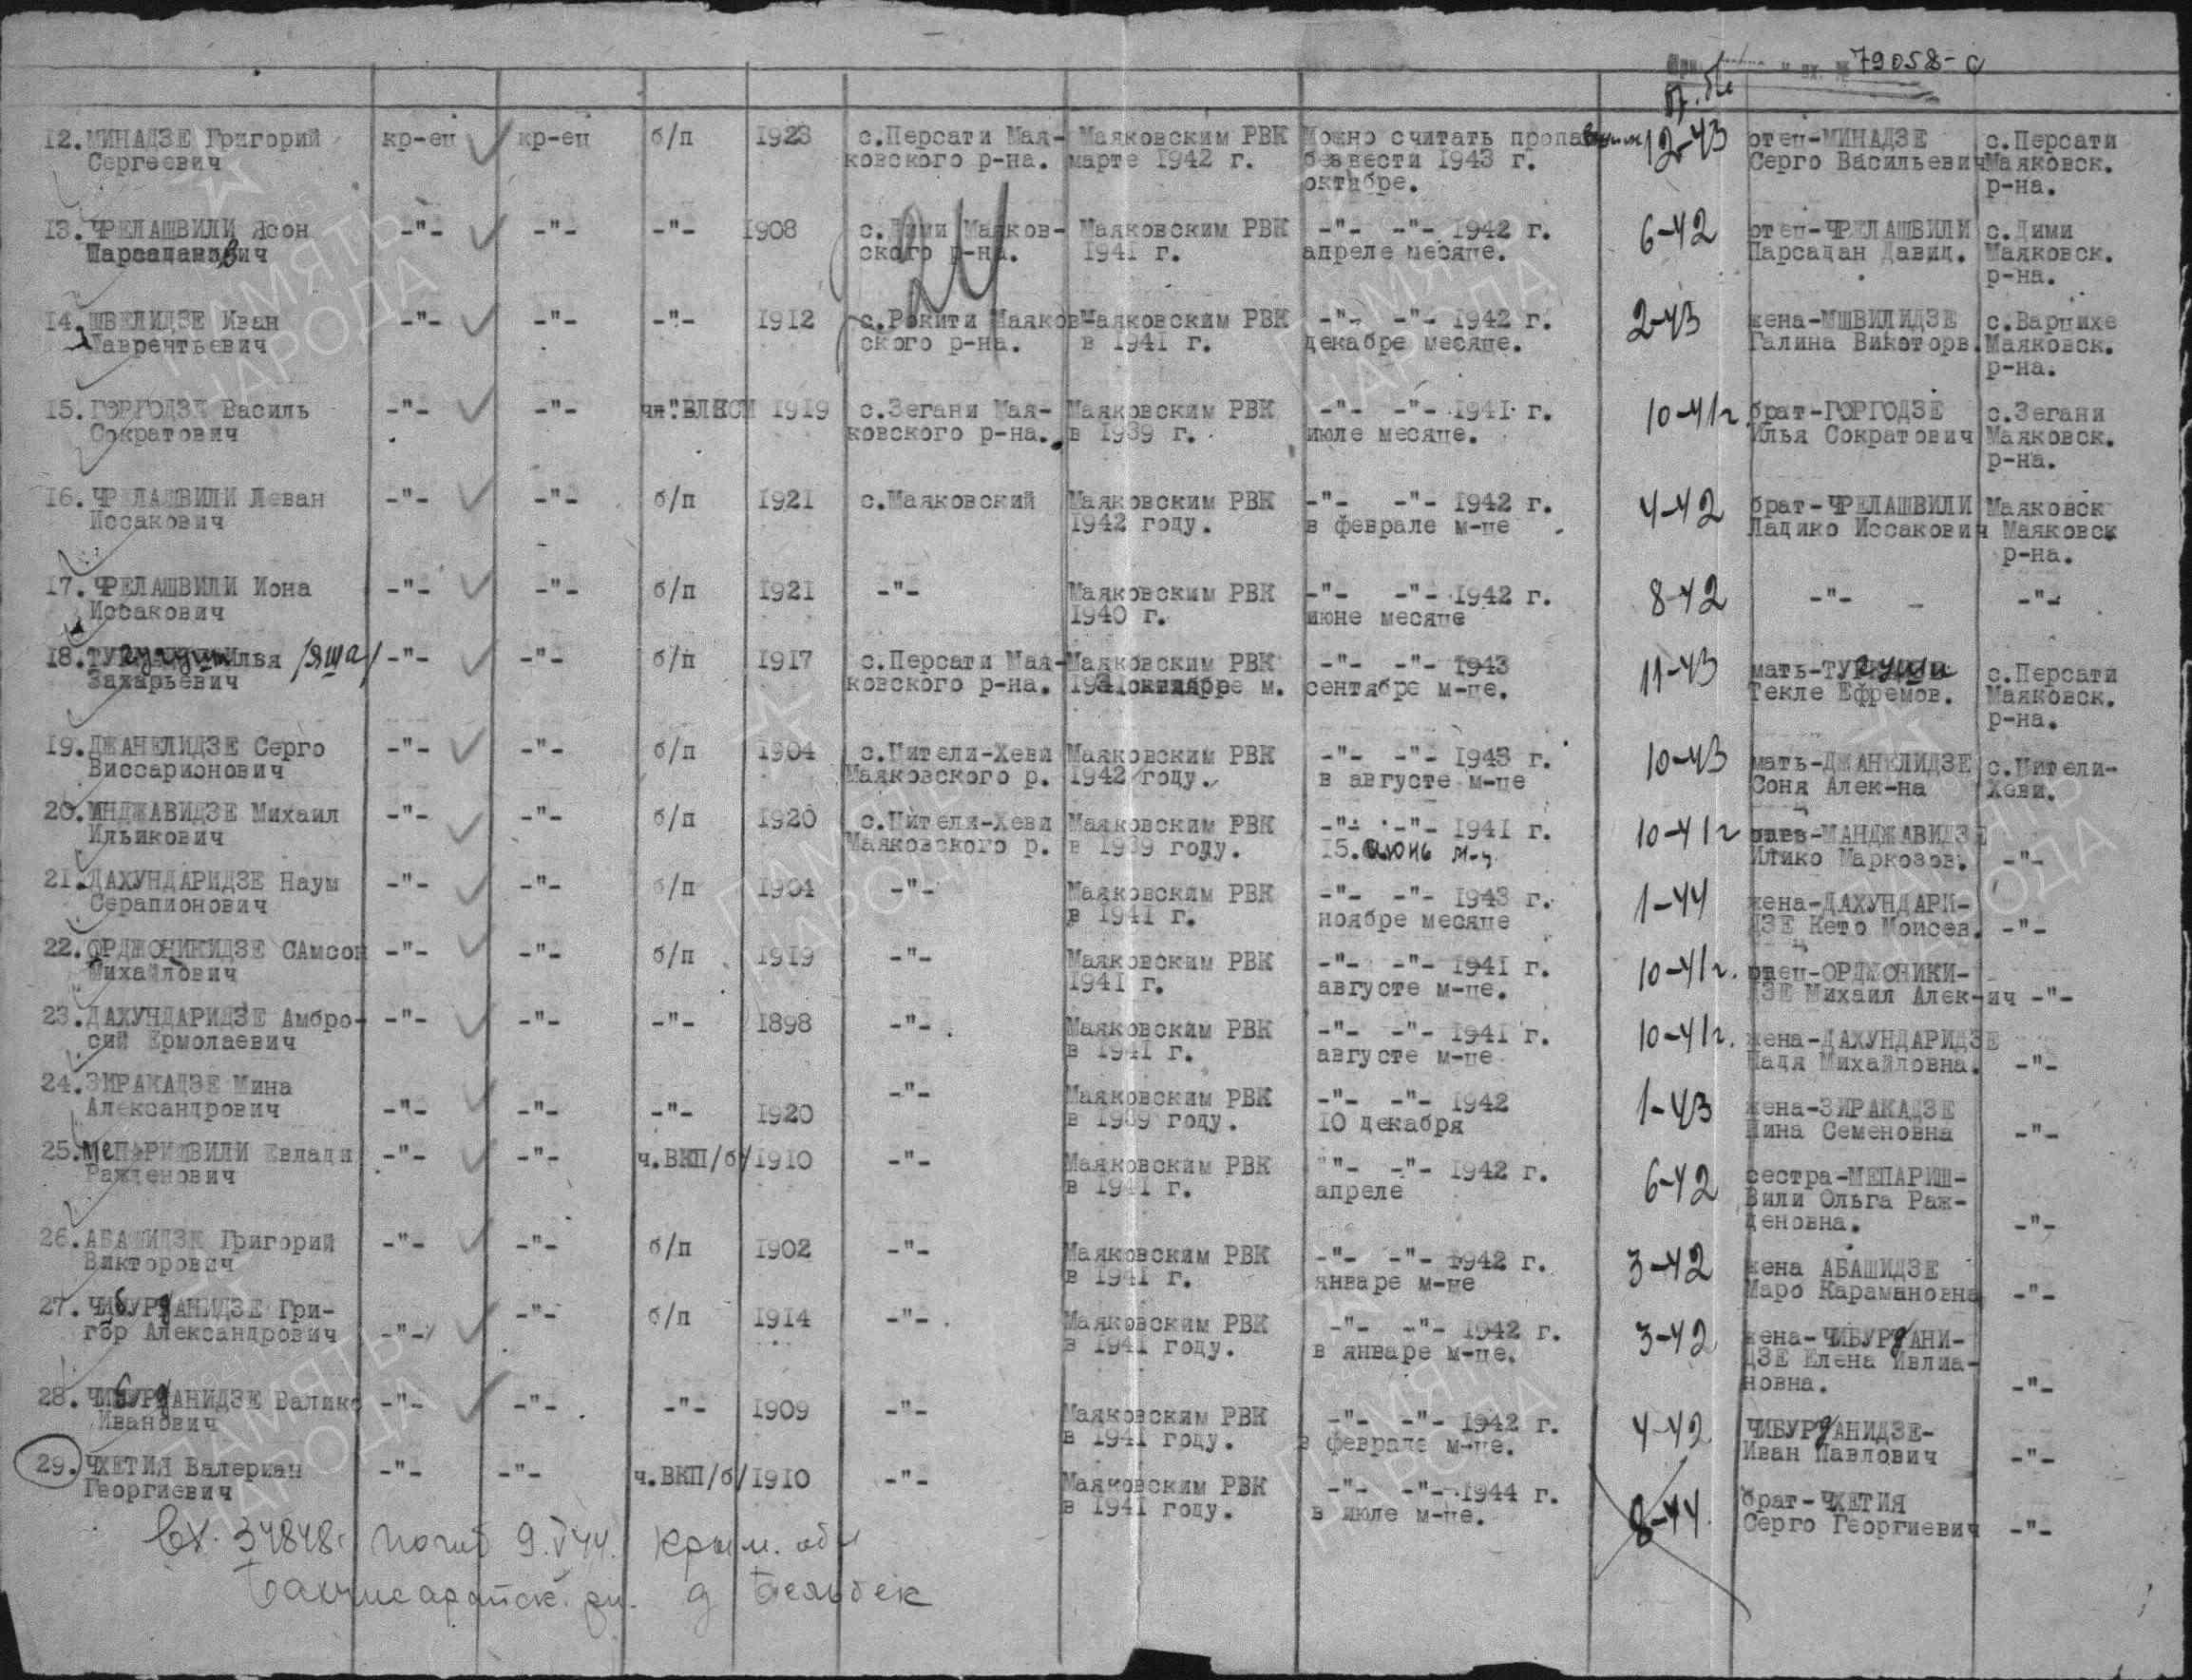 79058-с
12. МИНАДЗЕ Григорий Сергеевич кр-ец кр-ец б/п 1923 с.Персати Маяковского р-на. Маяковским РВК марте 1942 г. Можно считать пропавшим безвести 1943 г. октябре. 12-43 отец-МИНАДЗЕ Серго Васильевич с.Персати Маяковск. р-на.
13. ЧРЕЛАШВИЛИ Ясон Парсаданович -"- -"- -"- 1908 с.Дими Маяковского р-на. Маяковским РВК 1941 г. -"- -"- 1942 г. апреле месяце. 6-42 отец-ЧРЕЛАШВИЛИ Парсадан Давид. с.Дими Маяковск. р-на.
14. ШВЕЛИДЗЕ Иван Лаврентьевич -"- -"- -"- 1912 с.Рокити Маяковского р-на. Маяковским РВК в 1941 г. -"- -"- 1942 г. декабре месяце. 2-43 жена-МШВИЛИДЗЕ Галина Викоторв. с.Варцихе Маяковск. р-на.
15. ГОРГОДЗЕ Василь Сократович -"- -"- чл.ВЛКСМ 1919 с.Зегани Маяковского р-на. Маяковским РВК в 1939 г. -"- -"- 1941 г. июле месяце. 10-41г. брат-ГОРГОДЗЕ Илья Сократович с.Зегани Маяковск. р-на.
16. ЧРЕЛАШВИЛИ Леван Иссакович -"- -"- б/п 1921 с.Маяковский Маяковским РВК 1942 году. -"- -"- 1942 г. в феврале м-це 4-42 брат-ЧРЕЛАШВИЛИ Ладико Иссакович Маяковск Маяковск р-на.
17. ЧРЕЛАШВИЛИ Иона Иссакович -"- -"- б/п 1921 -"- Маяковским РВК 1940 г. -"- -"- 1942 г. июне месяце 8-42 -"- -"-
18. Илья /Яша/ Захарьевич -"- -"- б/п 1917 с.Персати Маяковского р-на. Маяковским РВК 1941 м. -"- -"- 1943 сентябре м-це. 11-43 мать- Текле Ефремов. с.Персати Маяковск. р-на.
19. ДЖАНЕЛИДЗЕ Серго Виссарионович -"- -"- б/п 1904 с.Цители-Хеви Маяковского р. Маяковским РВК 1942 году. -"- -"- 1943 г. в августе м-це 10-43 мать-ДЖАНЕЛИДЗЕ Соня Алек-на с.Цители-Хеви.
20. МНДЖАВИДЗЕ Михаил Ильикович -"- -"- б/п 1920 с.Цители-Хеви Маяковского р. Маяковским РВК в 1939 году. -"- -"- 1941 г. 15. июнь м-ц 10-41г отец-МАНДЖАВИДЗЕ Илико Маркозов. -"-
21. ДАХУНДАРИДЗЕ Наум Серапионович -"- -"- б/п 1904 -"- Маяковским РВК в 1941 г. -"- -"- 1943 г. ноябре месяце 1-44 жена-ДАХУНДАРИДЗЕ Кето Моисев. -"-
22. ОРДЖОНИКИДЗЕ САмсон Михайлович -"- -"- б/п 1919 -"- Маяковским РВК 1941 г. -"- -"- 1941 г. августе м-це. 10-41г. отец-ОРДЖОНИКИДЗЕ Михаил Алек-ич -"-
23. ДАХУНДАРИДЗЕ Амбросий Ермолаевич -"- -"- -"- 1898 -"- Маяковским РВК в 1941 г. -"- -"- 1941 г. августе м-це 10-41г. жена-ДАХУНДАРИДЗЕ Надя Михайловна. -"-
24. ЗИРАКАДЗЕ Мина Александрович -"- -"- -"- 1920 -"- Маяковским РВК в 1939 году. -"- -"- 1942 10 декабря 1-43 жена-ЗИРАКАДЗЕ Нина Семеновна -"-
25. МЕПАРИШВИЛИ Евлади Ражденович -"- -"- ч.ВКП/б/ 1910 -"- Маяковским РВК в 1941 г. -"- -"- 1942 г. апреле 6-42 сестра-МЕПАРИШВИЛИ Ольга Ражденовна. -"-
26. АБАШИДЗЕ Григорий Викторович -"- -"- б/п 1902 -"- Маяковским РВК в 1941 г. -"- -"- 1942 г. январе м-це 3-42 жена АБАШИДЗЕ Маро Карамановна -"-
27. ЧИБУРДАНИДЗЕ Григор Александрович -"- -"- б/п 1914 -"- Маяковским РВК в 1941 году. -"- -"- 1942 г. в январе м-це. 3-42 жена-ЧИБУРДАНИДЗЕ Елена Ивлиановна. -"-
28. ЧИБУРДАНИДЗЕ Валико Иванович -"- -"- -"- 1909 -"- Маяковским РВК в 1941 году. -"- -"- 1942 г. в феврале м-це. 4-42 ЧИБУРДАНИДЗЕ- Иван Павлович -"-
29. ЧХЕТИЯ Валериан Георгиевич -"- -"- ч.ВКП/б/ 1910 -"- Маяковским РВК в 1941 году. -"- -"- 1944 г. в июле м-це. 8-44 брат-ЧХЕТИЯ Серго Георгиевич -"-
вх. 34848с погиб 9.V44. Крым. обл
Бахчисарайск. рн. д Бельбек
ПАМЯТЬ НАРОДА